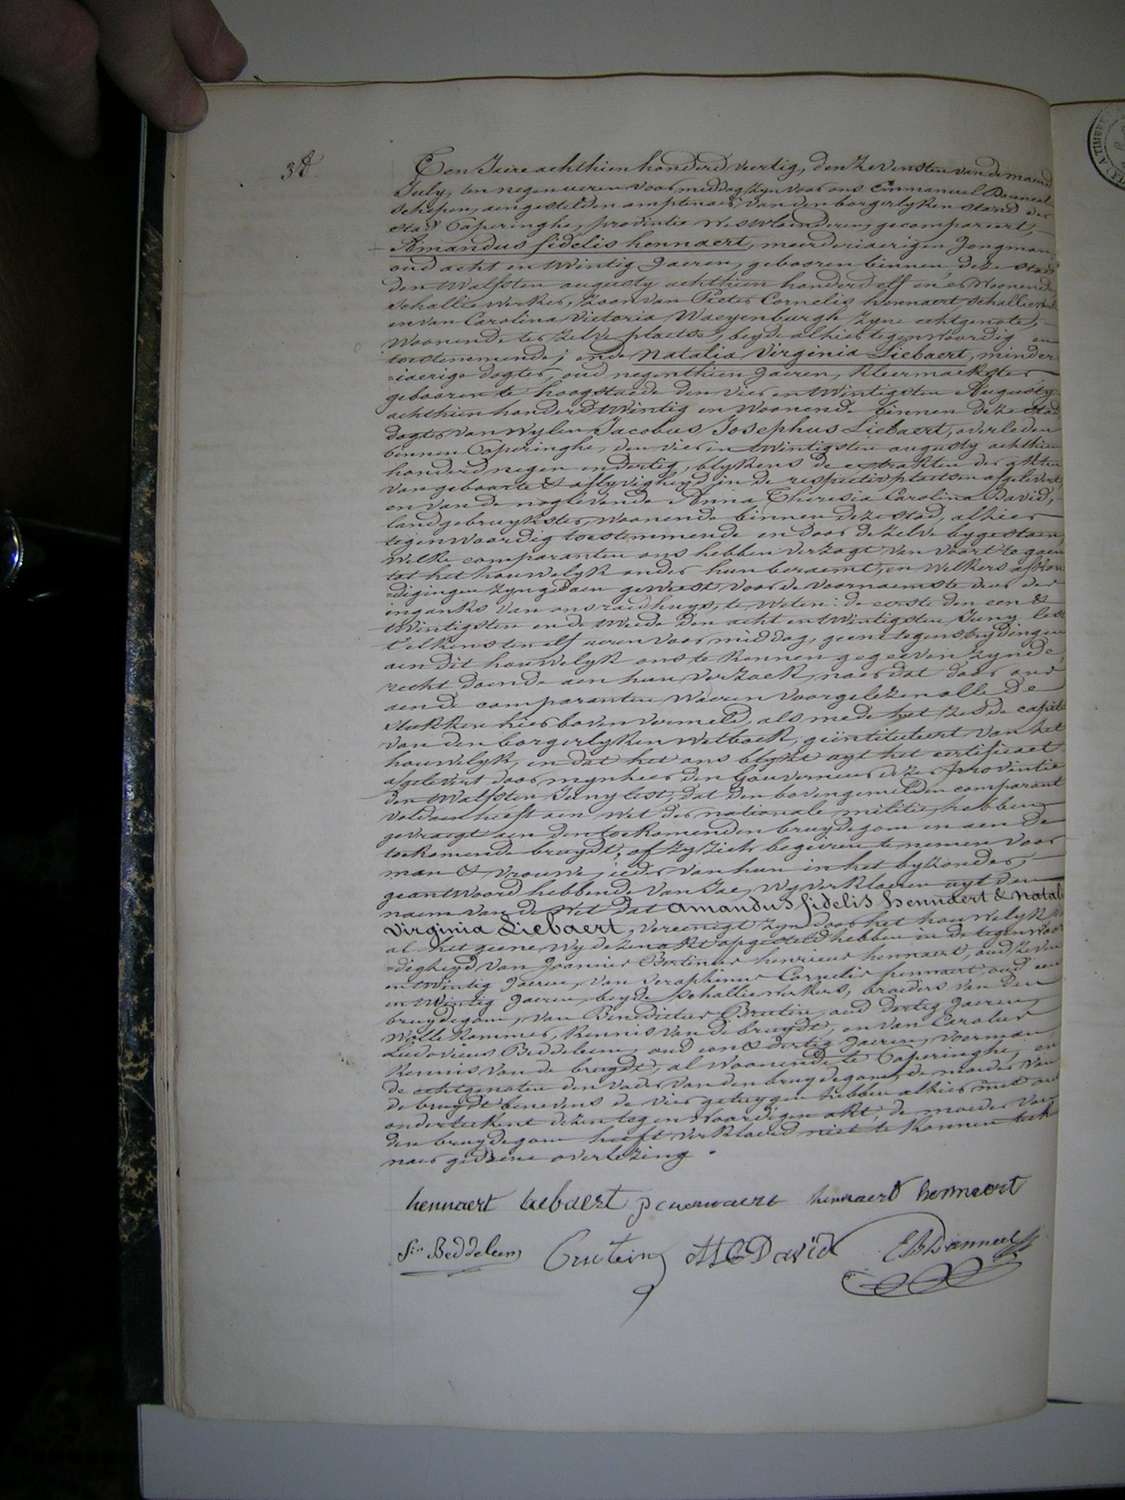 38
Een Jaere achthien honderd veertig, den Zevensten van de maend
July, ten negen ueren voormiddag zyn voor ons Emmanuel Danneel
Schepen, aengestelden amptenaer van den borgerlyken stand der
Stad Poperinghe, provintie Westvlaenderen, gecompareert,
Amandus fidelis hennaert, meerderjaerigen Jongman,
oud acht en twintig Jaeren, gebooren binnen deze Stad
den twalfsten augusty achthien honderd elf en er woonende
Schalliewerker, zoon van Pieter Cornelis hennaert schaliewerker
en van Carolina Victoria Waeyenburgh zyne echtgenote,
woonende ter zelve plaetse, beyde alhier tegenwoordig en
toestemmende; ende Natalia Virginia Liebaert, minder
=jaerige dogter, oud negenthien Jaeren, kleermaekster
gebooren te hoogstaede den vier en twintigsten Augusty
achthien honderd twintig en woonende binnen deze stad
dogter van wylen Jacobus Josephus Liebaert, overleden
binnen Poperinghe, den vier en twintigsten augusty achthien
honderd negen en dertig, blykens de extrakten der akten
van geboorte & aflyvigheyd in de respective plaetsen afgelevert,
en van de nog levende Anna Theresia Carolina David,
landgebruykster, woonende binnen deze stad, alhier
tegenwoordig toestemmende en door dezelve bygestaen,
welke comparanten ons hebben verzogt van voort te gaen
tot het houwelyk onder hun beraemt, en welkers afkon
=digingen zyn gedaen geweest voor de voornaemste deur der
ingank van ons raedhuys, te weten: de eerste den een &
twintigsten en de tweede den acht en twintigsten Juny lest
telkens ten elf ueren voormiddag, geene tegenstrydingen
aen dit houwelyk ons te kennen gegeeven zynde,
recht doende aen hun verzoek, naer dat door ons
aen de comparanten waeren voorgelezen alle de
stukken hier boven vermeld, als mede het zesde capittel
van den borgerlyken wetboek, geïntituleert van het
houwelyk, en dat het ons blykt uyt het certificaet
afgelevert door mynheer den Gouverneur dezer Provintie
den twalfsten Juny lest, dat den bovengemelden comparant
voldaen heeft aen wet der nationale militie, hebben
gevraegt aen den toekomenden bruydegom en aen de
toekomende bruydt, of zy zich begeeren te nemen voor
man & vrouwe, ieder van hun in het byzonder,
geantwoord hebbende van Jae, wy verklaeren uyt den
naem van de wet dat Amandus fidelis hennaert & Natalia
Virginia Liebaert, vereenigt zyn door het houwelyk,
al het geene wy deze akt opgesteld hebben in de tegenwoor
=digheyd van Joannes Bertinus henricus hennaert, oud zeven
en twintig Jaeren, van Seraphinus Cornelis hennaert oud een
en twintig Jaeren, beyde schalliewerkers, broeders van den
bruydegom, van Benedictus Cruten, oud dertig Jaeren,
wollekammer, kennis van de bruydt, en van Carolus
Ludovicus Beddeleem, oud een & dertig Jaeren, voerman
kennis van de bruydt, al woonende te Poperinghe, en
de echtgenoten den vader van den bruydegom, de moeder van
de bruydt benevens de vier getuygen hebben alhier met ons
onderteekent dezen tegenwoordigen akt, de moeder van
den bruydegom heeft verklaerd niet te konnen teek
naer gedaene overlezing.
hennaert Liebaert p c hennaert hennaert hennaert
Beddeleem Cruten A T C David E Danneel